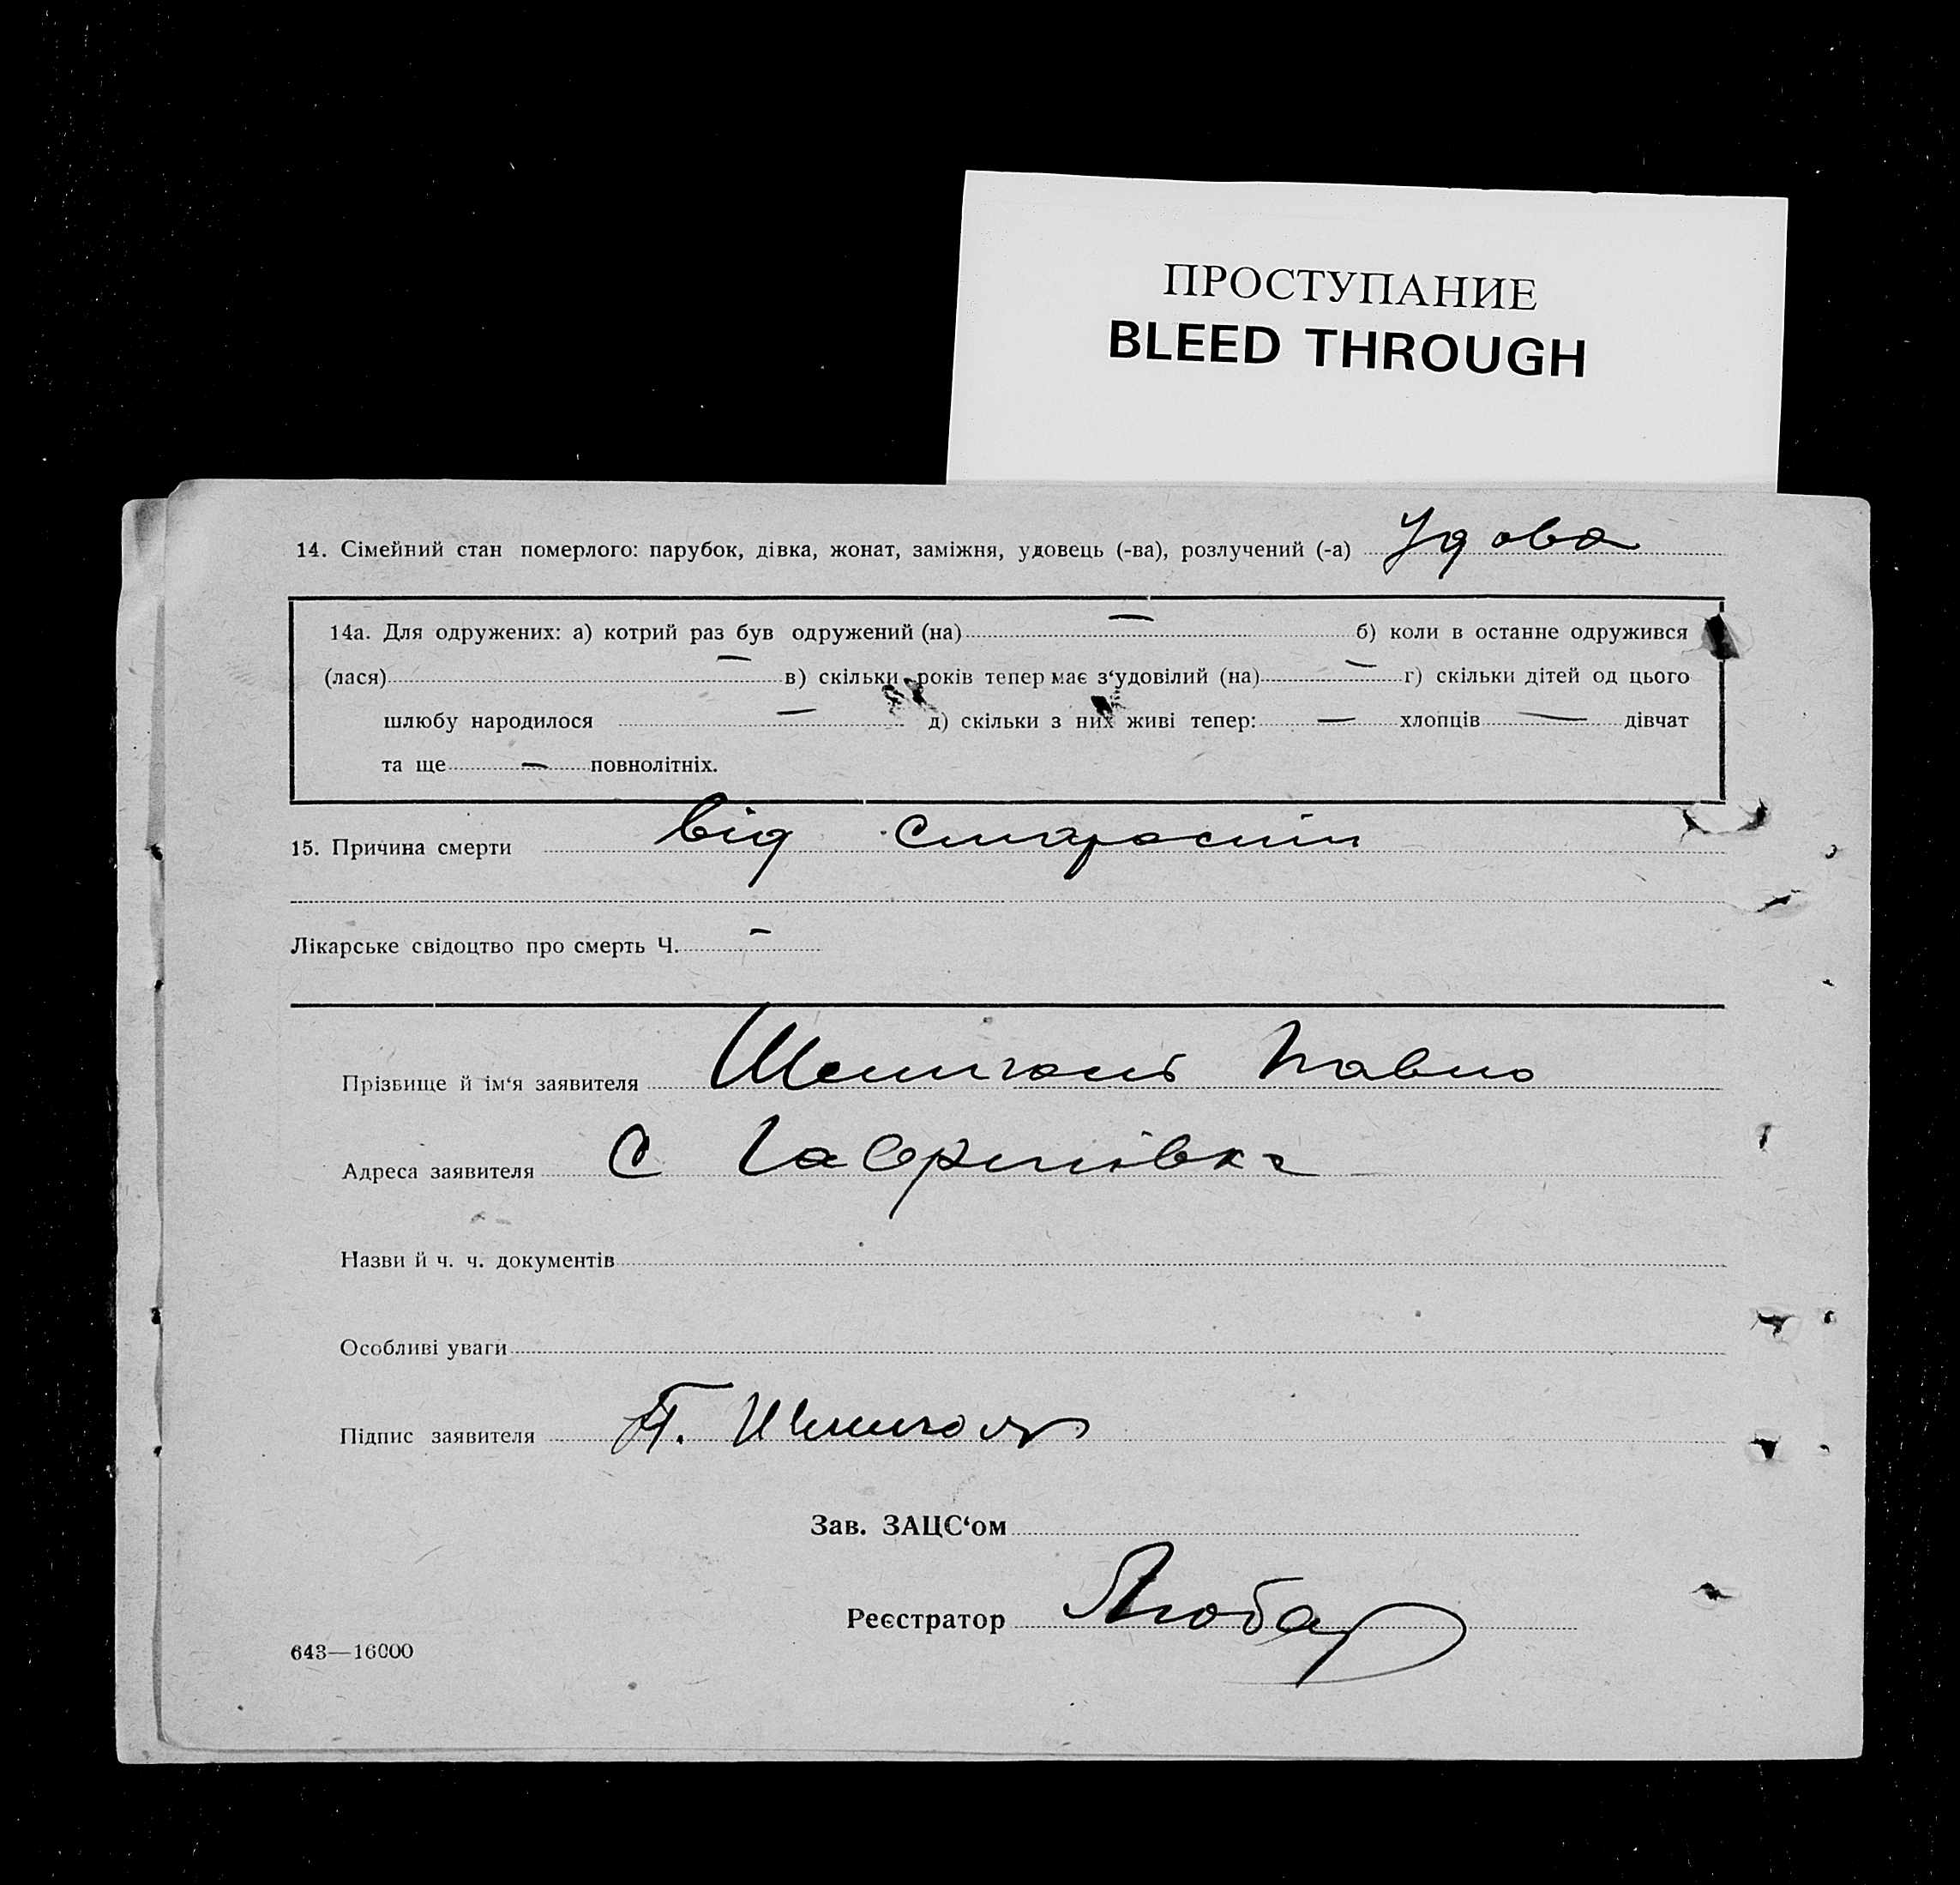 ПРОСТУПАНИЕ
BLEED THROUGH
14. Сімейний стан померлого: парубок, дівка, жонат, заміжня, удовець (-ва), розлучений (-а) Удова
14а. Для одружених: а) котрий раз був одружений (на) — б) коли в останнє одружився
(лася) — в) скільки років тепер має з‘удовілий (на) — г) скільки дітей од цього
шлюбу народилося — д) скільки з них живі тепер: — хлопців — дівчат
та ще — повнолітніх.
15. Причина смерти від старости
Лікарське свідоцтво про смерть Ч. —
Прізвище й ім‘я заявителя Павло
Адреса заявителя С Гаврилівка
Назви й ч. ч. документів
Особливі уваги
Підпис заявителя П.
Зав. ЗАЦС‘ом
Реєстратор Любар
643—16000